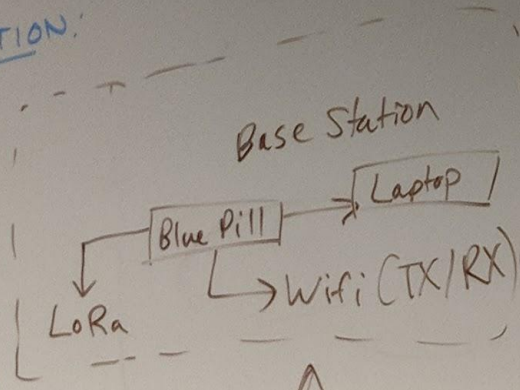 TION:
Base Station
Laptop
Blue Pill
Wifi (TX/RX)
LoRa